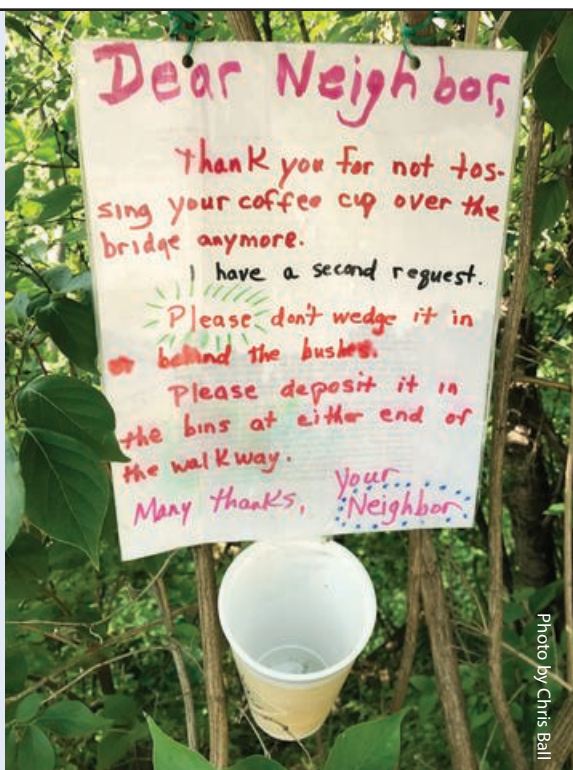 Dear Neighbor,
Thank you for not tos-
sing your coffee cup over the
bridge anymore.
I have a second request.
Please don't wedge it in
or behind the bushes.
Please deposit it in
the bins at either end of
the walkway.
Many thanks, your
Neighbor
Photo by Chris Ball